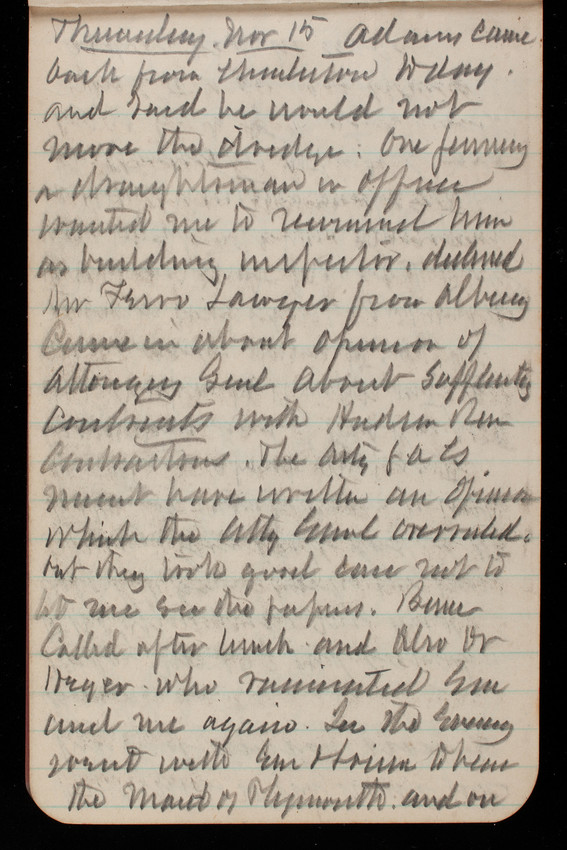 Thursday. Nov 15 Adams came
back from Charleston today.
and said he would not
move the dredge. One
a draughtsman in office
wanted me to recommend him
as building inspector. declined
Mr Lawyer from Albany
Came in about opinion of
Attorney Genl about
Contracts with Hudson River
Contractors. The
must have written an opinion
which the Atty Genl overruled.
but they took good care not to
let me see the papers.
Called after lunch and also Dr
who vaccinated Em
and me again. In the Evening
went with Em to hear
the Maid of Plymouth. and on